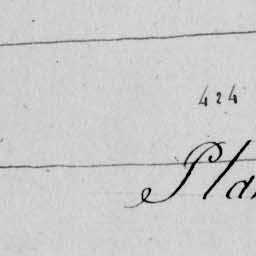 424
Pla